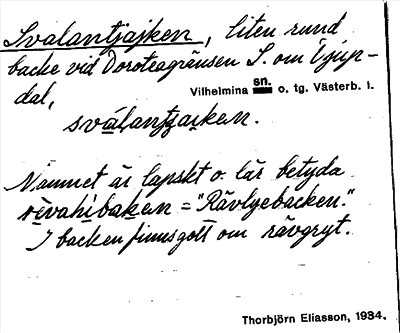 Svalantjajken, liten rund
backe vid Doroteagränsen S. om Djup-
dal,
Vilhelmina sn. o. tg. Västerb. l.
svalantjaiken.
Namnet är lapskt o. lär betyda
rävahibaken = "Rävlyebacken."
I backen finns gott om rävgryt.
Thorbjörn Eliasson, 1934.